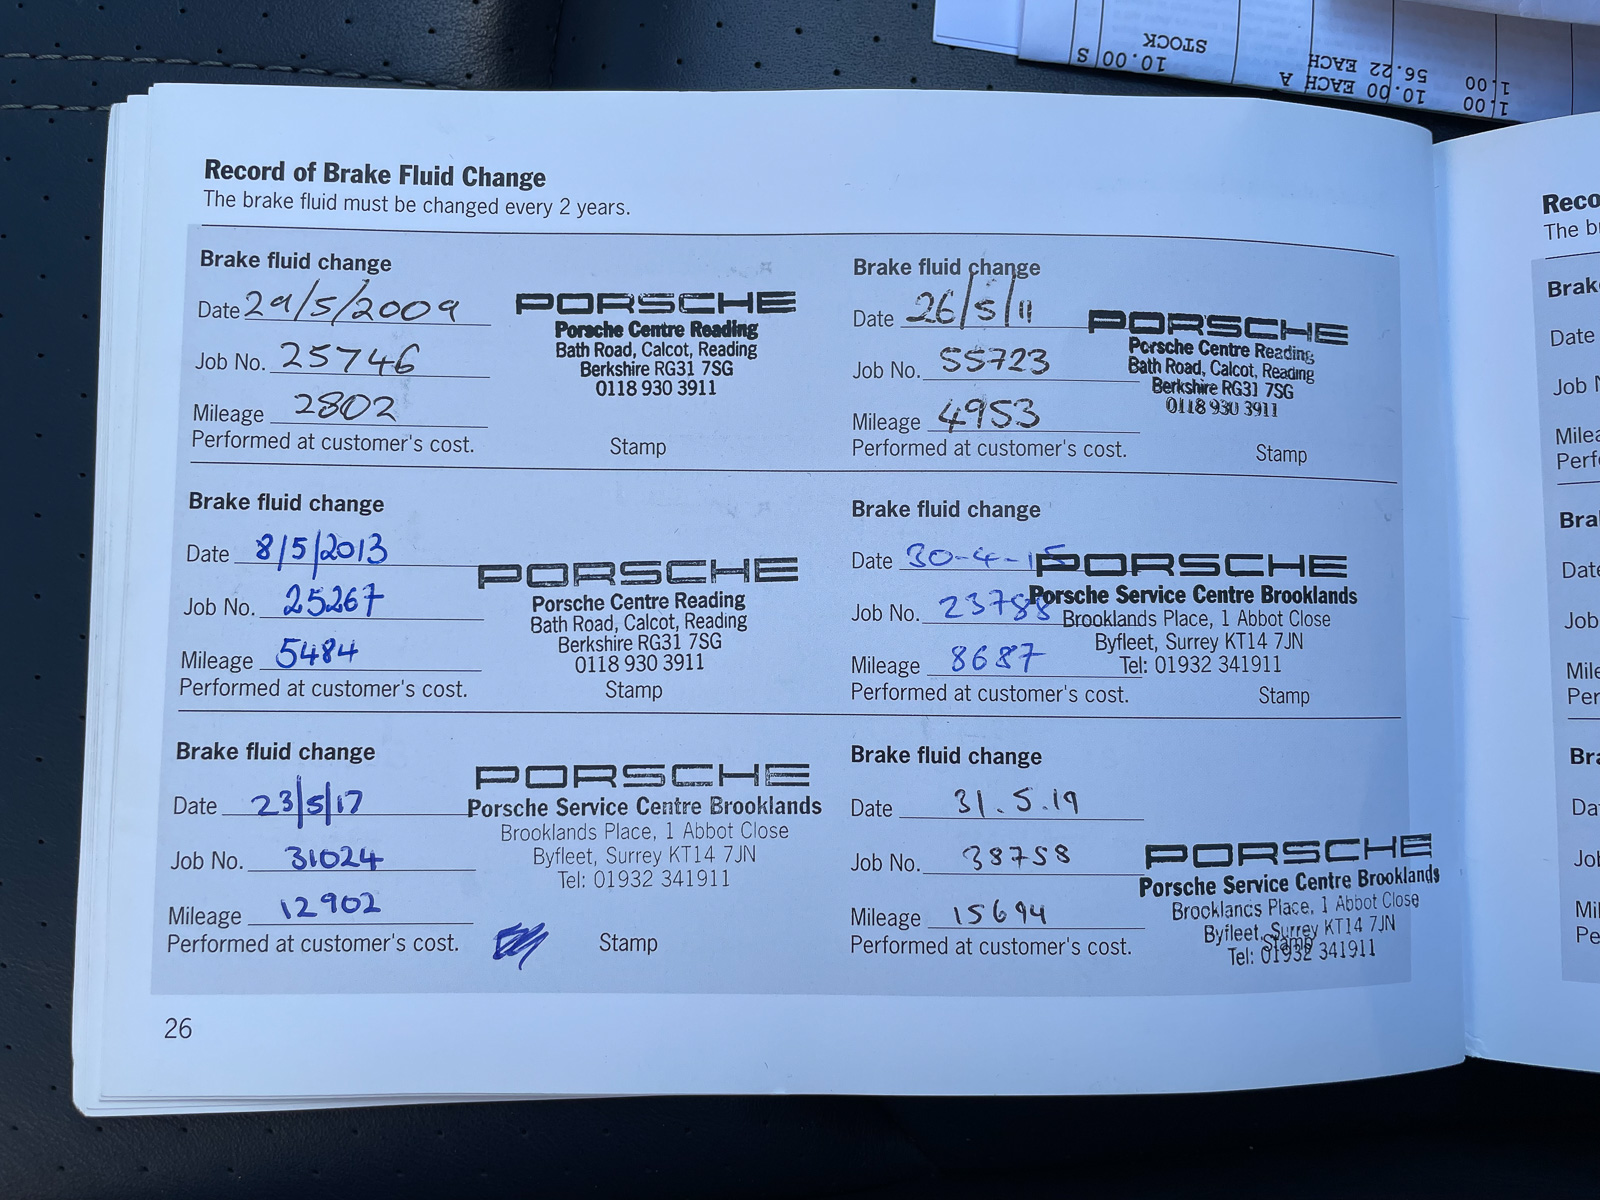 10.00 S
STOCK
1.00 10.00 EACH A
1.00 56.22 EACH
Record of Brake Fluid Change
The brake fluid must be changed every 2 years.
Brake fluid change
Date 29/5/2009
Job No. 25746
Mileage 2802
Performed at customer's cost.
PORSCHE
Porsche Centre Reading
Bath Road, Calcot, Reading
Berkshire RG31 7SG
0118 930 3911
Stamp
Brake fluid change
Date 26/5/11
Job No. 55723
Mileage 4953
Performed at customer's cost.
PORSCHE
Porsche Centre Reading
Bath Road, Calcot, Reading
Berkshire RG31 7SG
0118 930 3911
Stamp
Brake fluid change
Date 8/5/2013
Job No. 25267
Mileage 5484
Performed at customer's cost.
PORSCHE
Porsche Centre Reading
Bath Road, Calcot, Reading
Berkshire RG31 7SG
0118 930 3911
Stamp
Brake fluid change
Date 30-4-15
Job No. 23788
Mileage 8687
Performed at customer's cost.
PORSCHE
Porsche Service Centre Brooklands
Brooklands Place, 1 Abbot Close
Byfleet, Surrey KT14 7JN
Tel: 01932 341911
Stamp
Brake fluid change
Date 23/5/17
Job No. 31024
Mileage 12902
Performed at customer's cost.
PORSCHE
Porsche Service Centre Brooklands
Brooklands Place, 1 Abbot Close
Byfleet, Surrey KT14 7JN
Tel: 01932 341911
Stamp
Brake fluid change
Date 31.5.19
Job No. 38758
Mileage 15694
Performed at customer's cost.
PORSCHE
Porsche Service Centre Brooklands
Brooklands Place, 1 Abbot Close
Byfleet, Surrey KT14 7JN
Tel: 01932 341911
Stamp
26
Reco
The b
Brak
Date
Job N
Milea
Perf
Bra
Date
Job
Mile
Per
Bra
Da
Jo
Mi
Pe